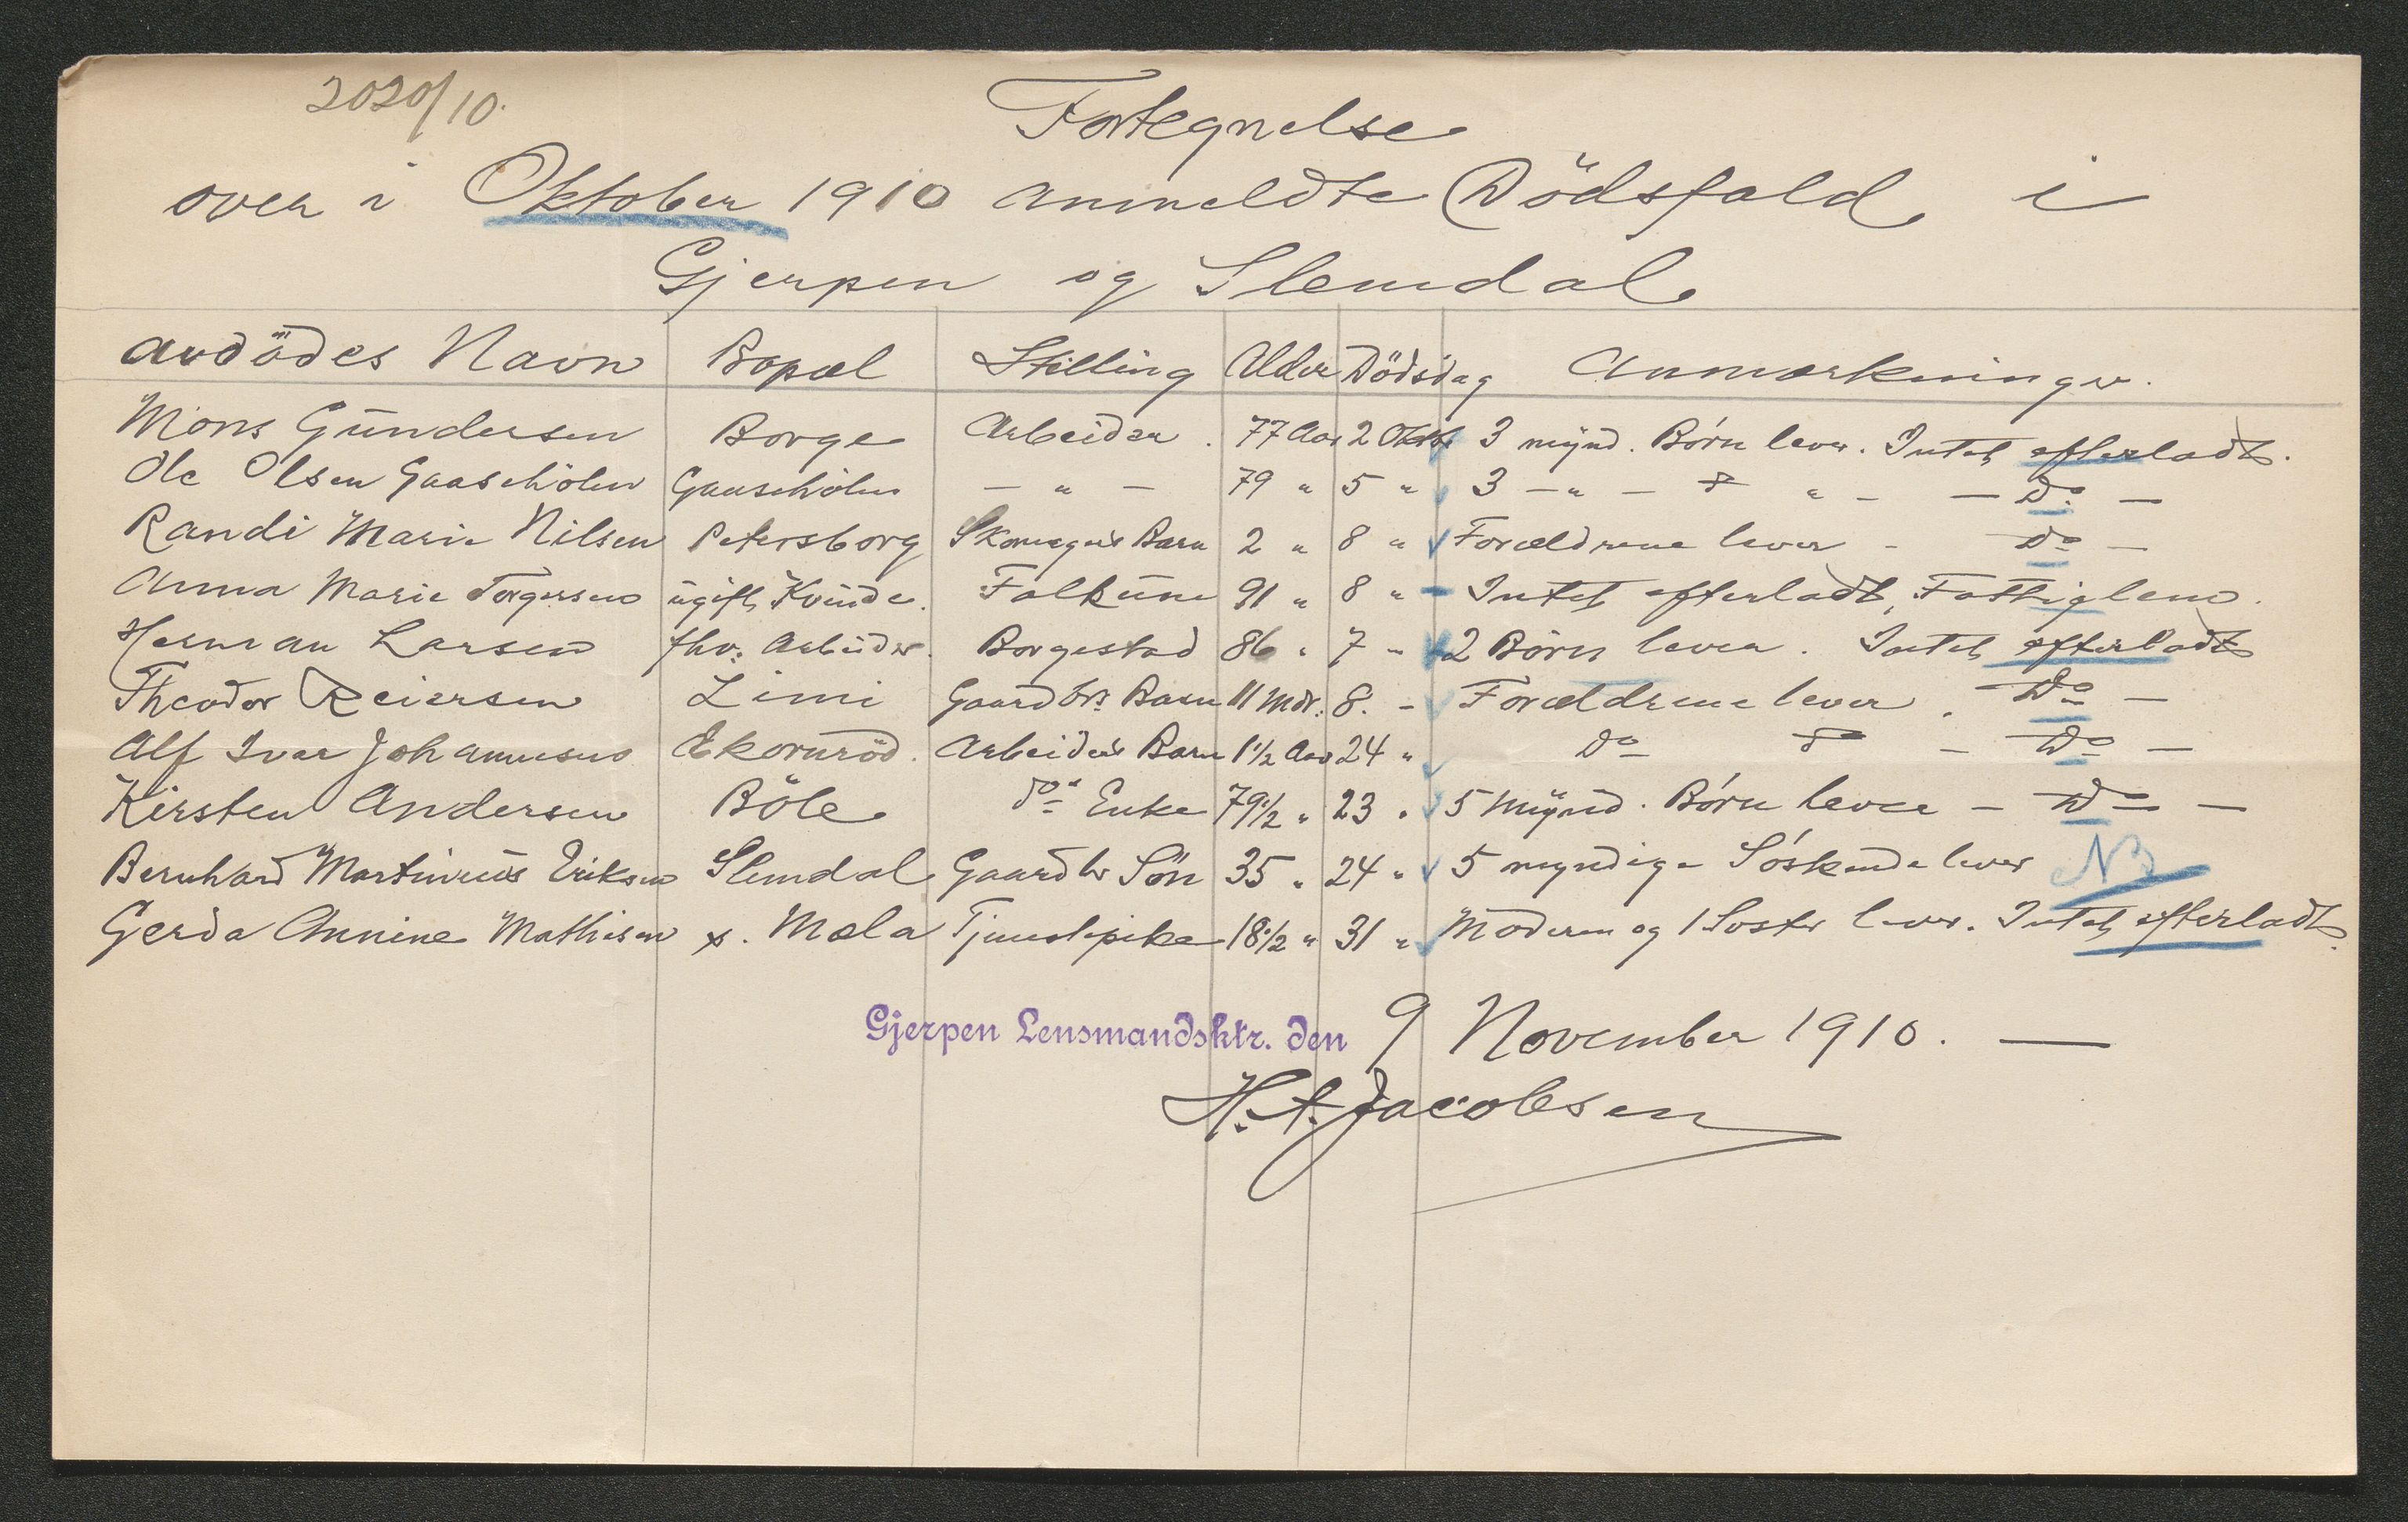 2020/10.
Fortegnelse
over i Oktober 1910 anmeldte Dödsfald i
Gjerpen og Slemdal
Avdödes Navn Bopæl Stilling Alder Dödsdag Anmærkninger.
Mons Gundersen Borge Arbeider. 77 Aar 2 Oktbr 3 mynd. Børn lever. Intet efterladt.
Ole Olsen Gaaseholm Gaaseholm — " — 79 " 5 " 3 — " — " — — Do —
Randi Marie Nilsen Petersborg Skomagers Barn 2 " 8 " Forældrene lever - Do —
Anna Marie Torgersen ugift Kvinde. Falkum 91 " 8 " - Intet efterladt, Fattiglem.
Herman Larsen fhv: Arbeider. Borgestad 86 " 7 " 2 Børn lever. Intet efterladt
Theodor Reiersen Limi Gaardbrs Barn 11 Mdr. 8. - Forældrene lever. - Do —
Alf Ivar Johannesen Ekornröd. Arbeiders Barn 1½ Aar 24 " Do — Do —
Kirsten Andersen Böle do " Enke 79½ " 23 " 5 Mynd. Børn lever — Do —
Bernhard Martinius Eriksen Slemdal Gaardbr Sön 35 " 24 " 5 myndige Søskende lever NB
Gerda Annine Mathisen x. Mæla Tjenestepike 18½ " 31 " Moderen og 1 Søster lever. Intet efterladt.
Gjerpen Lensmandsktr. den 9 November 1910. —
H. A. Jacobsen